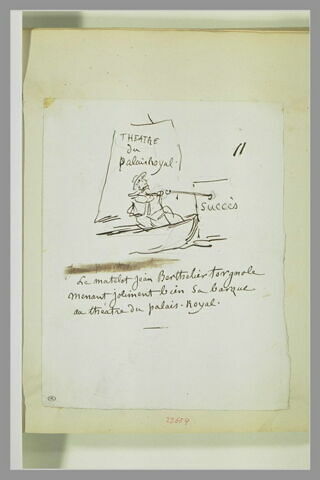 THEATRE
du
palais Royal.
11
succès
Le matelot jean Berthelier torgnole
menant joliment bien sa barque
au theatre du palais-Royal.
23659